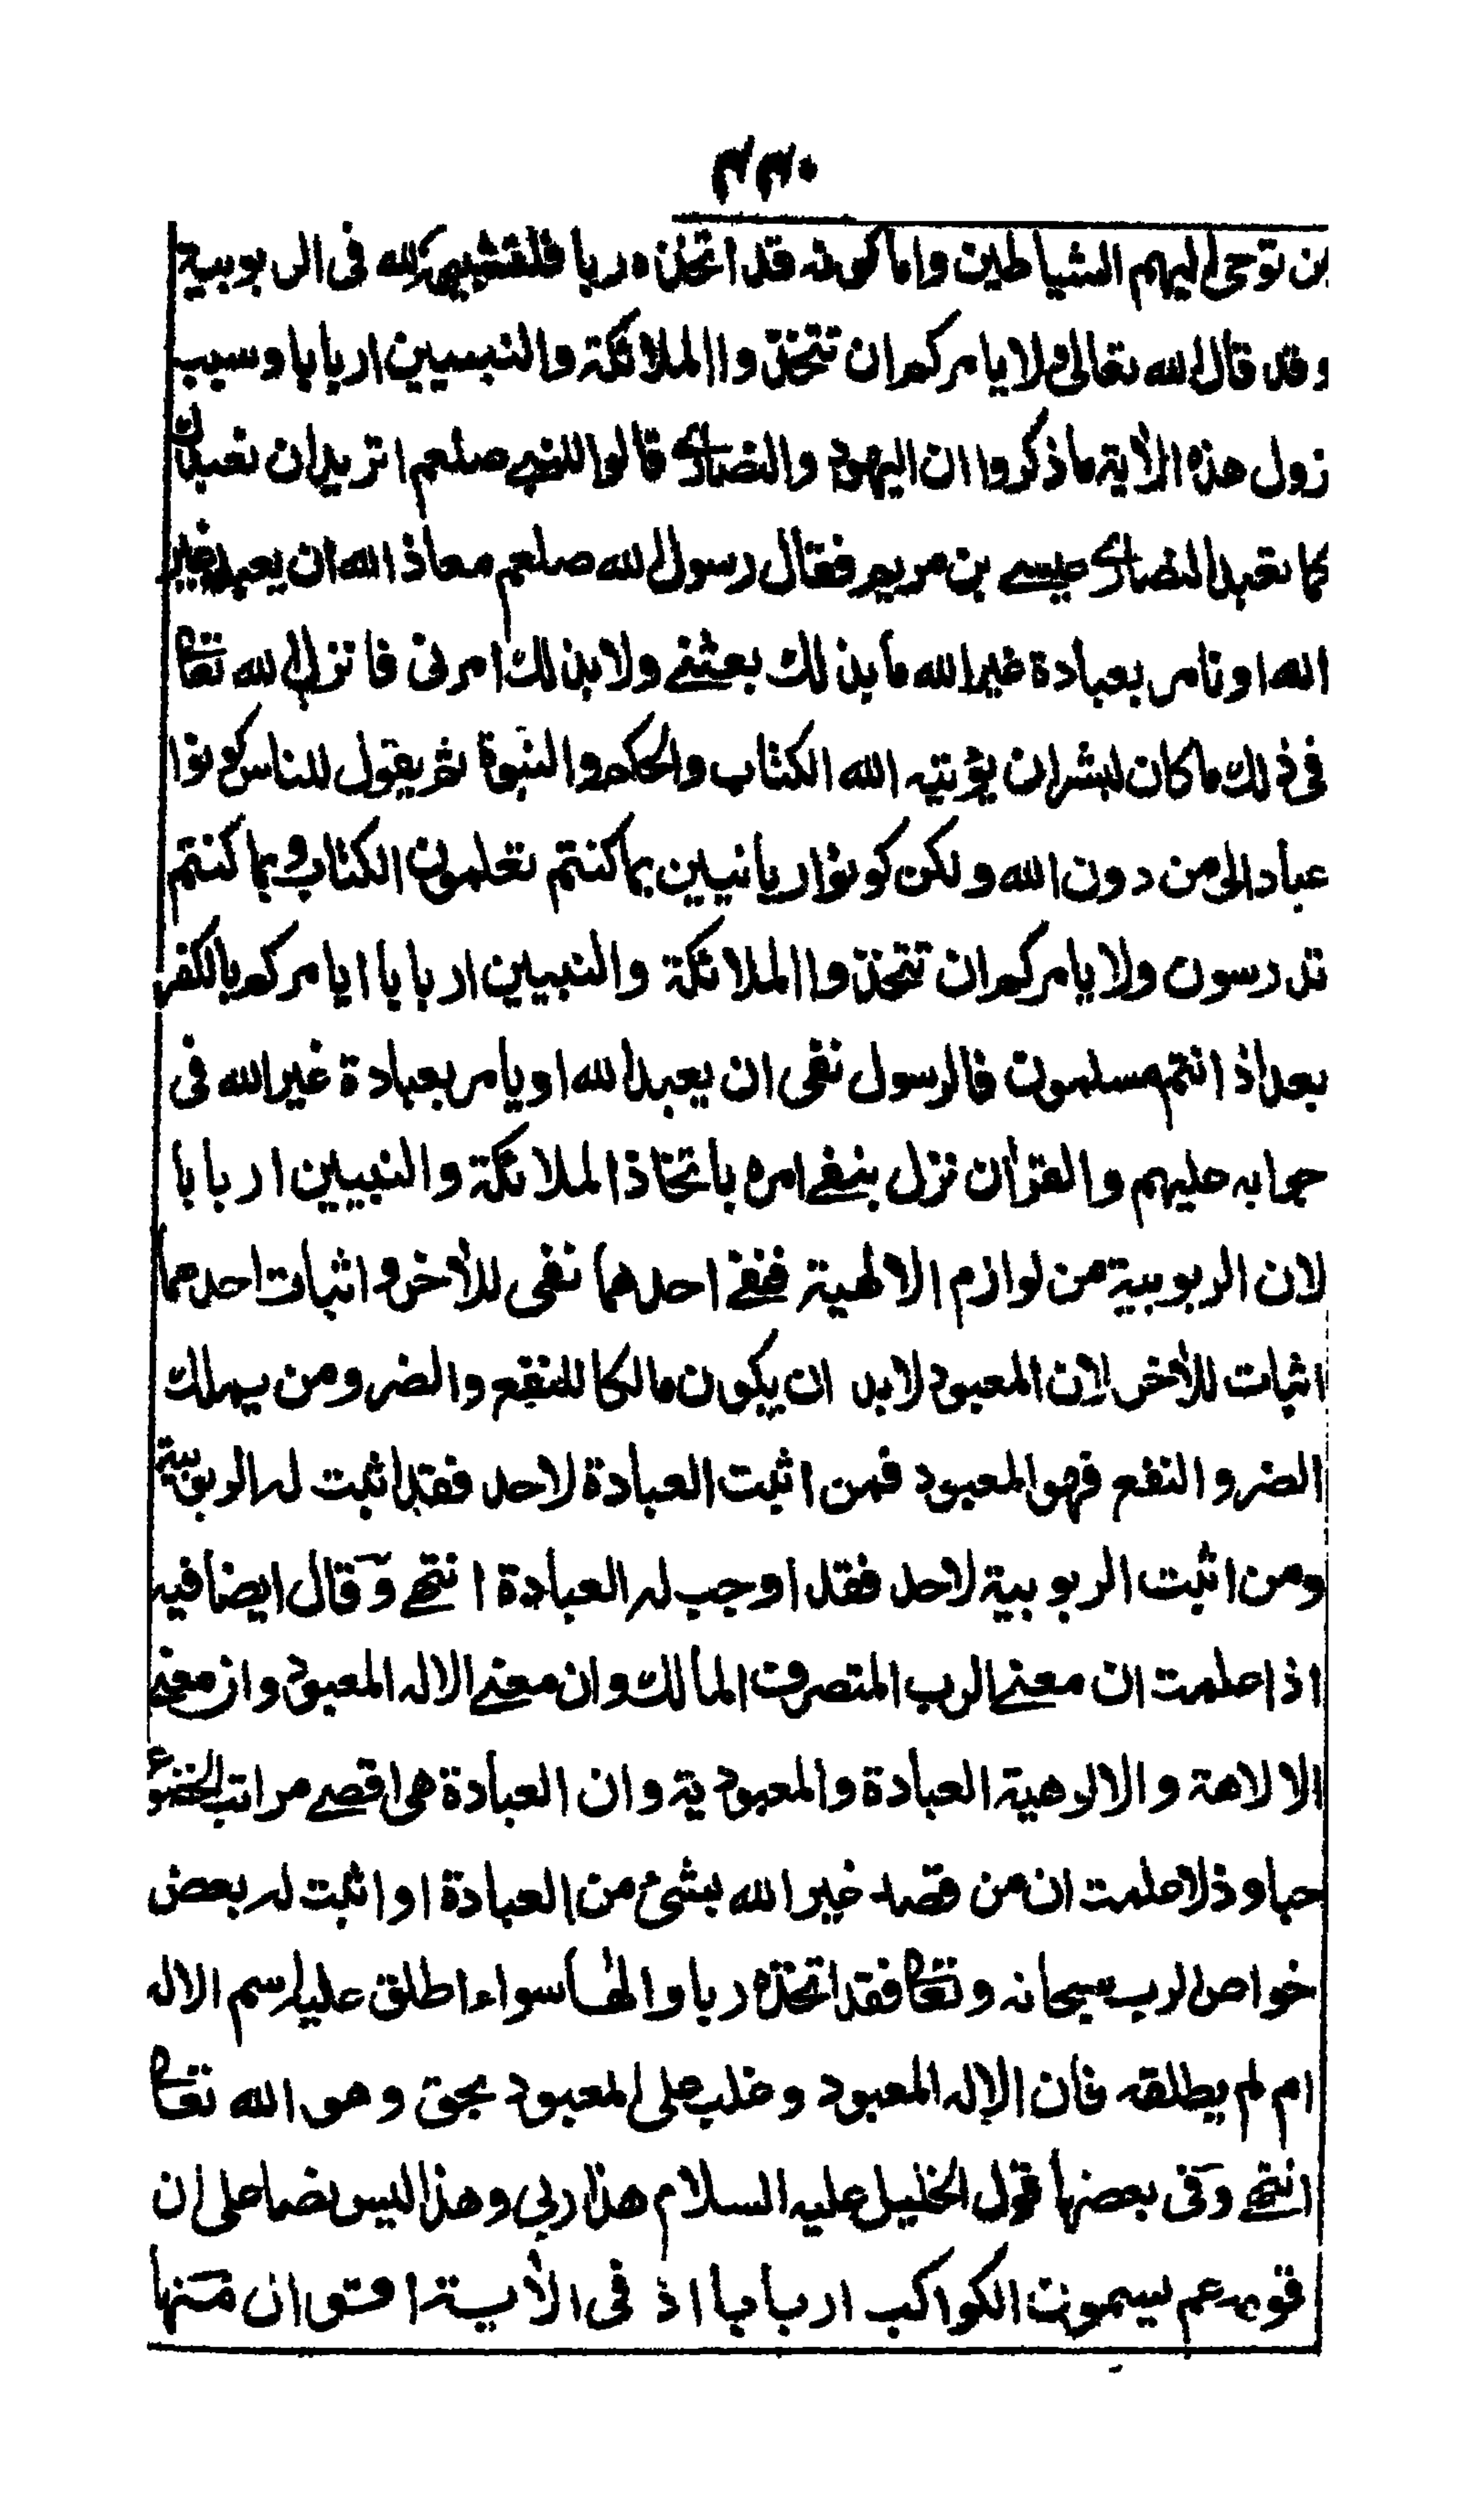 ٤٤٠
من توحى اليهم الشياطين واما كونه قد اتخذه ربا فلتشبيهه بالله فى الربوبية
وقد قال الله تعالى ولا يامركم ان تتخذوا الملائكة والنبيين اربابا وسبب
نزول هذه الآية ماذكروا ان اليهود والنصارى قالوا للنبي صلعم اتريد ان نعبدك
كما تعبد النصارى عيسے بن مريم فقال رسول الله صلعم معاذ الله ان يعبد غير
الله او نامر بعبادة غير الله ما بذلك بعثنے ولا بذلك امرنى فانزل الله تعا
فى ذلك ما كان لبشر ان يؤتيه الله الكتاب والحكم والنبوة ثم يقول للناس كونوا
عبادا لى من دون الله ولكن كونوا ربانيين بما كنتم تعلمون الكتاب وبما كنتم
تدرسون ولا يامركم ان تتخذوا الملائكة والنبيين اربابا ايامركم بالكفر
بعد اذ انتم مسلمون فالرسول نفى ان يعبد الله او يامر بعبادة غير الله فى
جوابه عليهم والقرآن نزل بنفے امره باتخاذ الملائكة والنبيين اربابا
لان الربوبية من لوازم الالهية ففے احدهما نفى للآخر واثبات احدهما
اثبات للآخر لان المعبود لابد ان يكون مالكا للنفع والضر ومن يملك
الضر والنفع فهو المعبود فمن اثبت العبادة لاحد فقد اثبت له الربوبية
ومن اثبت الربوبية لاحد فقد اوجب له العبادة انتهے وقال ايضا فيه
اذا علمت ان معنے الرب المتصرف المالك وان معنے الاله المعبود وان معنے
الالاهة والالوهية العبادة والمعبودية وان العبادة هى اقصے مراتب الخضوع
حبا وذلا علمت ان من قصد غير الله بشئ من العبادة او اثبت له بعض
خواص الرب سبحانه وتعا فقد اتخذه ربا والها سواء اطلق عليه اسم الاله
ام لم يطلقه فان الاله المعبود وغلب على المعبود بحق وهو الله تعا
انتهے وفى بعضها قول الخليل عليه السلام هذا ربى وهذا ليس نصا على ان
قومه عم يسمون الكواكب اربابا اذ فى الآية اقوال منها